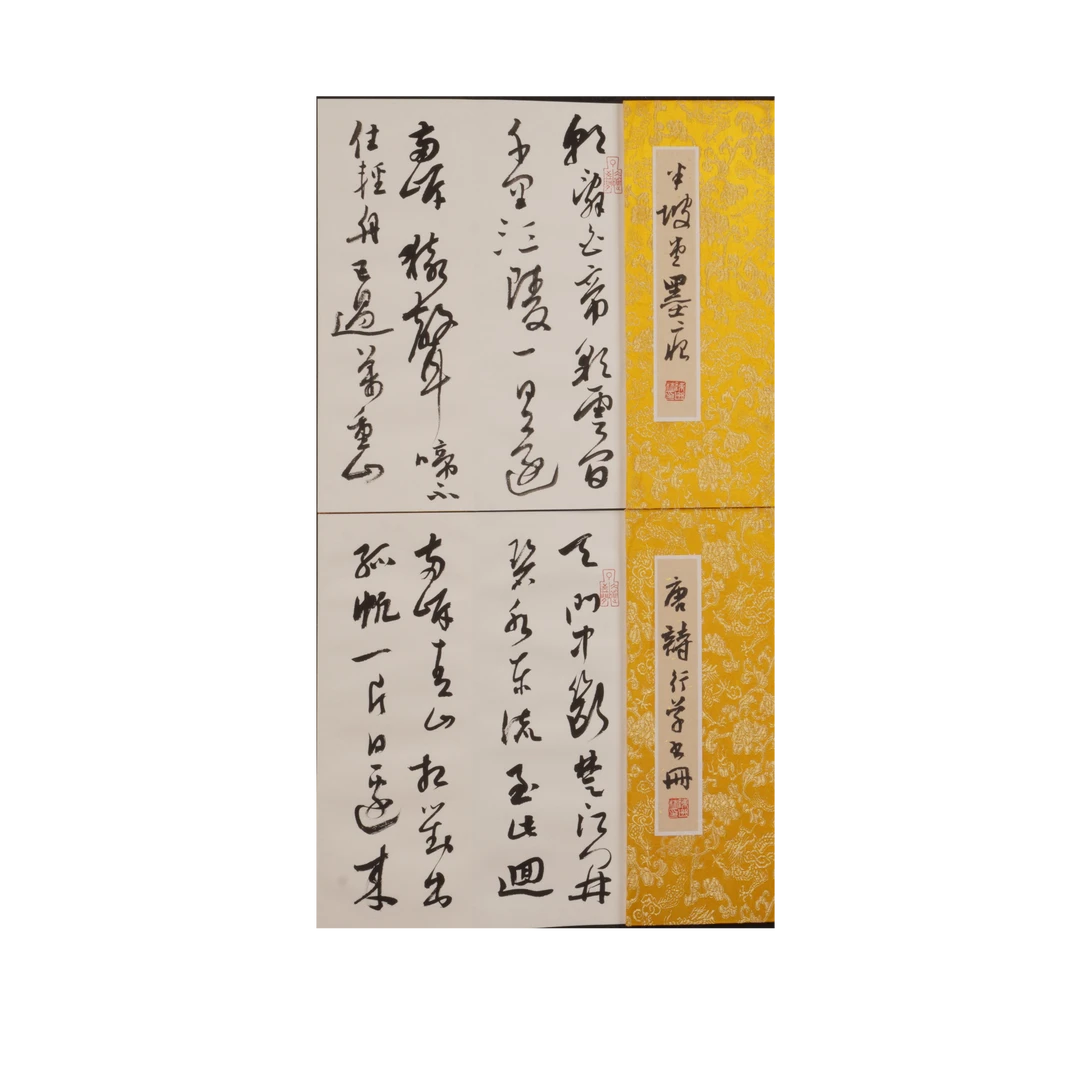 半坡堂墨痕
朝辭白帝彩雲間
千里江陵一日還
兩岸猿聲啼不
住輕舟已過萬重山
唐詩行草書冊
天門中斷楚江開
碧水東流至此迴
兩岸青山相對出
孤帆一片日邊來